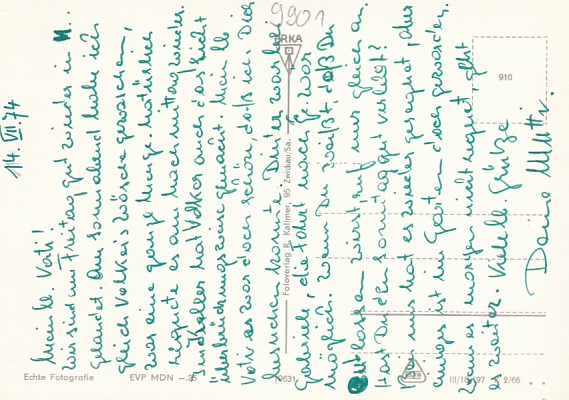 14. VII. 74
Mein lb. Vati!
wir sind am Freitag gut wieder in M..
gelandet. Am Sonnabend habe ich
gleich Volkers Wäsche gewaschen,
war eine ganze Menge. Natürlich
regnete es am Nachmittag wieder.
hat Volker auch das Licht
gemacht. Mein lb
Vati es war doch schön, daß ich Dich
besuchen konnte. Dir war
Gabriele, die Fahrt nach G. war
möglich. Wenn Du weißt, daß Du
entlassen wirst ruf uns gleich an.
Hast Du den Sonntag gut verlebt?
uns hat es wieder geregnet, aber
einiges ist im Garten doch geworden.
Wenn es morgen nicht regnet, geht
es weiter. Viele lb. Grüße
Deine Mutti.
9901
ERKA
910
Fotoverlag R. Kallmer, 95 Zwickau/Sa.
Echte Fotografie
EVP MDN –.25
10631
III/18/197
2/66